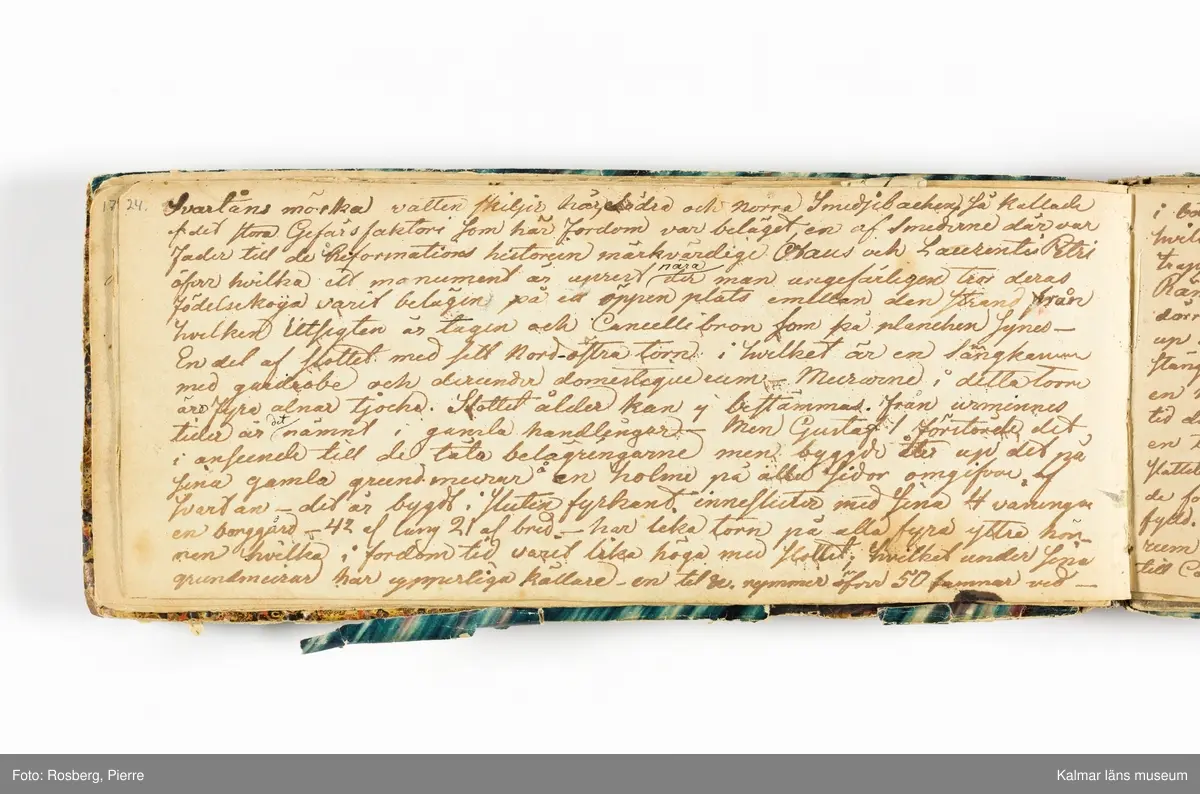 17 24. Svartåns mörka vatten skiljer här södra och norra Smedjebacken, så kallade
af det stora Gefärsfaktori som här fordom var beläget en af Smederne där var
fader till de Reformations historien märkvärdige Olaus och Laurentii Petri
öfver hvilka ett monument är uprest nära der man ungefärligen tror deras
födelsekoja varit belägen på en öppen plats emellan den Strand från
hvilken Utsigten är tagen och Cancellibron som på planchen synes —
En del af slottet med sitt Nord-östra torn i hvilket är en sängkammare
med garderobe och derunder domestique rum — Murarne i detta torn
äro fyra alnar tjocka. Slottets ålder kan ej bestämmas. från urminnes
tider är det nämnt i gamla handlingar — Men Gustaf I förstörde det
i anseende till de täta belägringarne men bygde åter up det på
sina gamla grundmurar å en holme på alla sidor omgifven af
Svartån — det är bygdt i sluten fyrkant, innesluter med sina 4 våningar
en borggård — 42 al lång 21 al bred — har lika torn på alla fyra yttre hör-
nen hvilka i fordom tid varit lika höga med slottet, hvilket under sina
grundmurar har ypperliga källare — en del rymmer öfver 50 famnar ved —
i
hvil
trap
där
up
stäng
en
tid
en
slottet
de
fyll
rum
till
Foto: Rosberg, Pierre
Kalmar läns museum